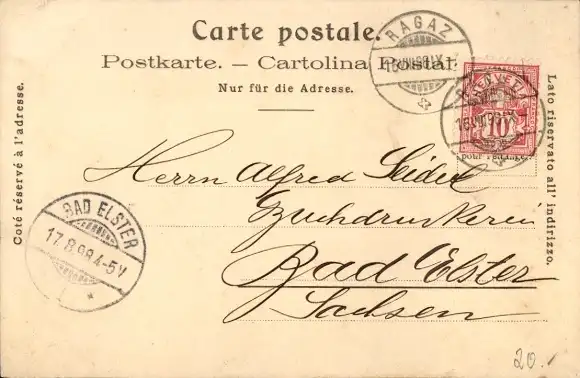 Carte postale.
Postkarte. – Cartolina Postal
Nur für die Adresse.
Coté réservé à l'adresse.
Lato riservato all' indirizzo.
RAGAZ
HELVETIA
10
pour l'étranger.
Herrn Alfred Seidel
Buchdruckerei
Bad Elster
Sachsen
BAD ELSTER
17.8.98.4-5V
20.